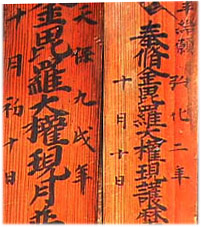 結願 弘化二年
奉脩金毘羅大權現護麻
十月十日
天保九戌年
金毘羅大權現月並
十月初十日